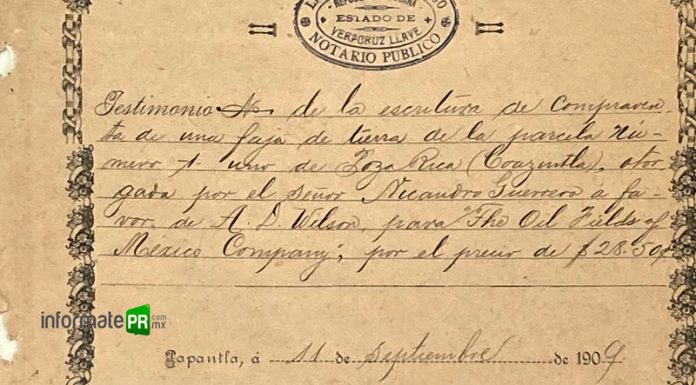 REPUBLICA MEXICANA
ESTADO DE
VERACRUZ LLAVE
NOTARIO PUBLICO
Testimonio N. de la escritura de compraven-
ta de una faja de tierra de la parcela nú-
mero 1 uno de Poza Rica (Coazintla), otor-
gada por el señor Nicandro Guerrero a fa-
vor de A. D. Wilson, para "The Oil Fields of
México Company", por el precio de $28.50¢
informatePR.com.mx
Papantla, á 11 de septiembre de 1909